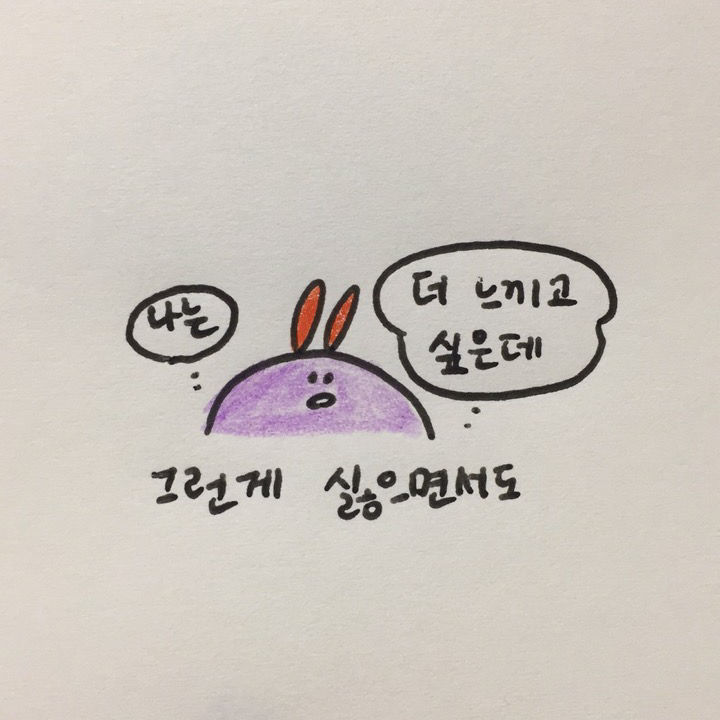 나는
더 느끼고
싶은데
그런게 싫으면서도